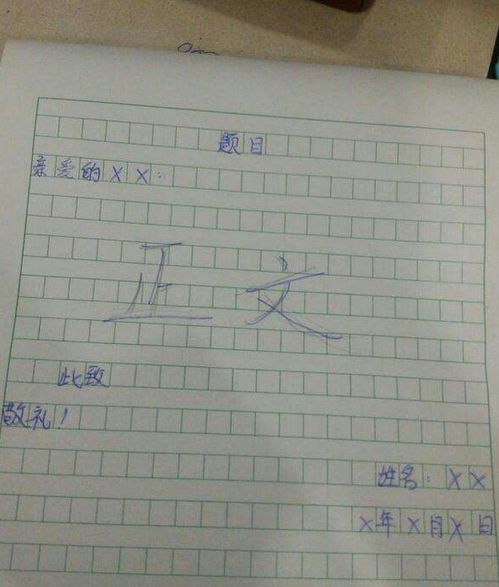 题目
亲爱的XX:
正文
此致
敬礼!
姓名:XX
X年X月X日